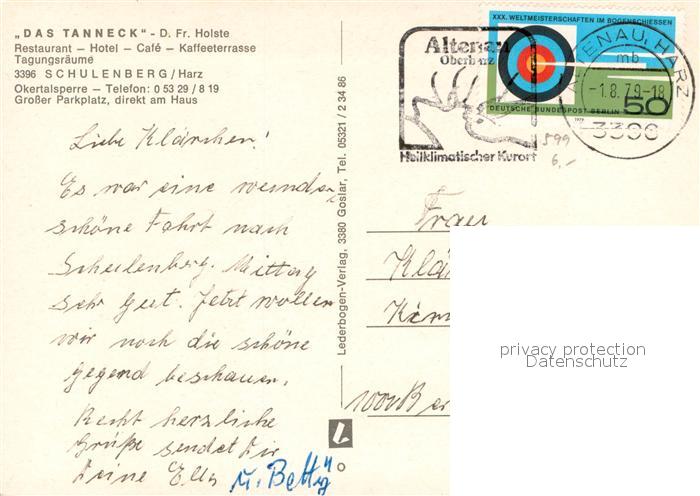 „DAS TANNECK“ - D. Fr. Holste
Restaurant — Hotel — Café — Kaffeeterrasse
Tagungsräume
3396 SCHULENBERG/Harz
Okertalsperre — Telefon: 0 53 29 / 8 19
Großer Parkplatz, direkt am Haus
Liebe Klärchen!
Es war eine wunder,
schöne Fahrt nach
Schulenberg. Mittag
sehr gut. Jetzt wollen
wir noch die schöne
gegend beschauen.
Recht herzliche
Grüße sendet Dir
Deine Elly u. Betty
Lederbogen-Verlag, 3380 Goslar, Tel. 05321 / 2 34 86
Altenau
Oberharz
Heilklimatischer Kurort
XXX. WELTMEISTERSCHAFTEN IM BOGENSCHIESSEN
DEUTSCHE BUNDESPOST BERLIN 50
1979
ALTENAU, HARZ
mb
-1.8.79-18
3396
599
6,-
Frau
Klä
1000 Ber
privacy protection
Datenschutz